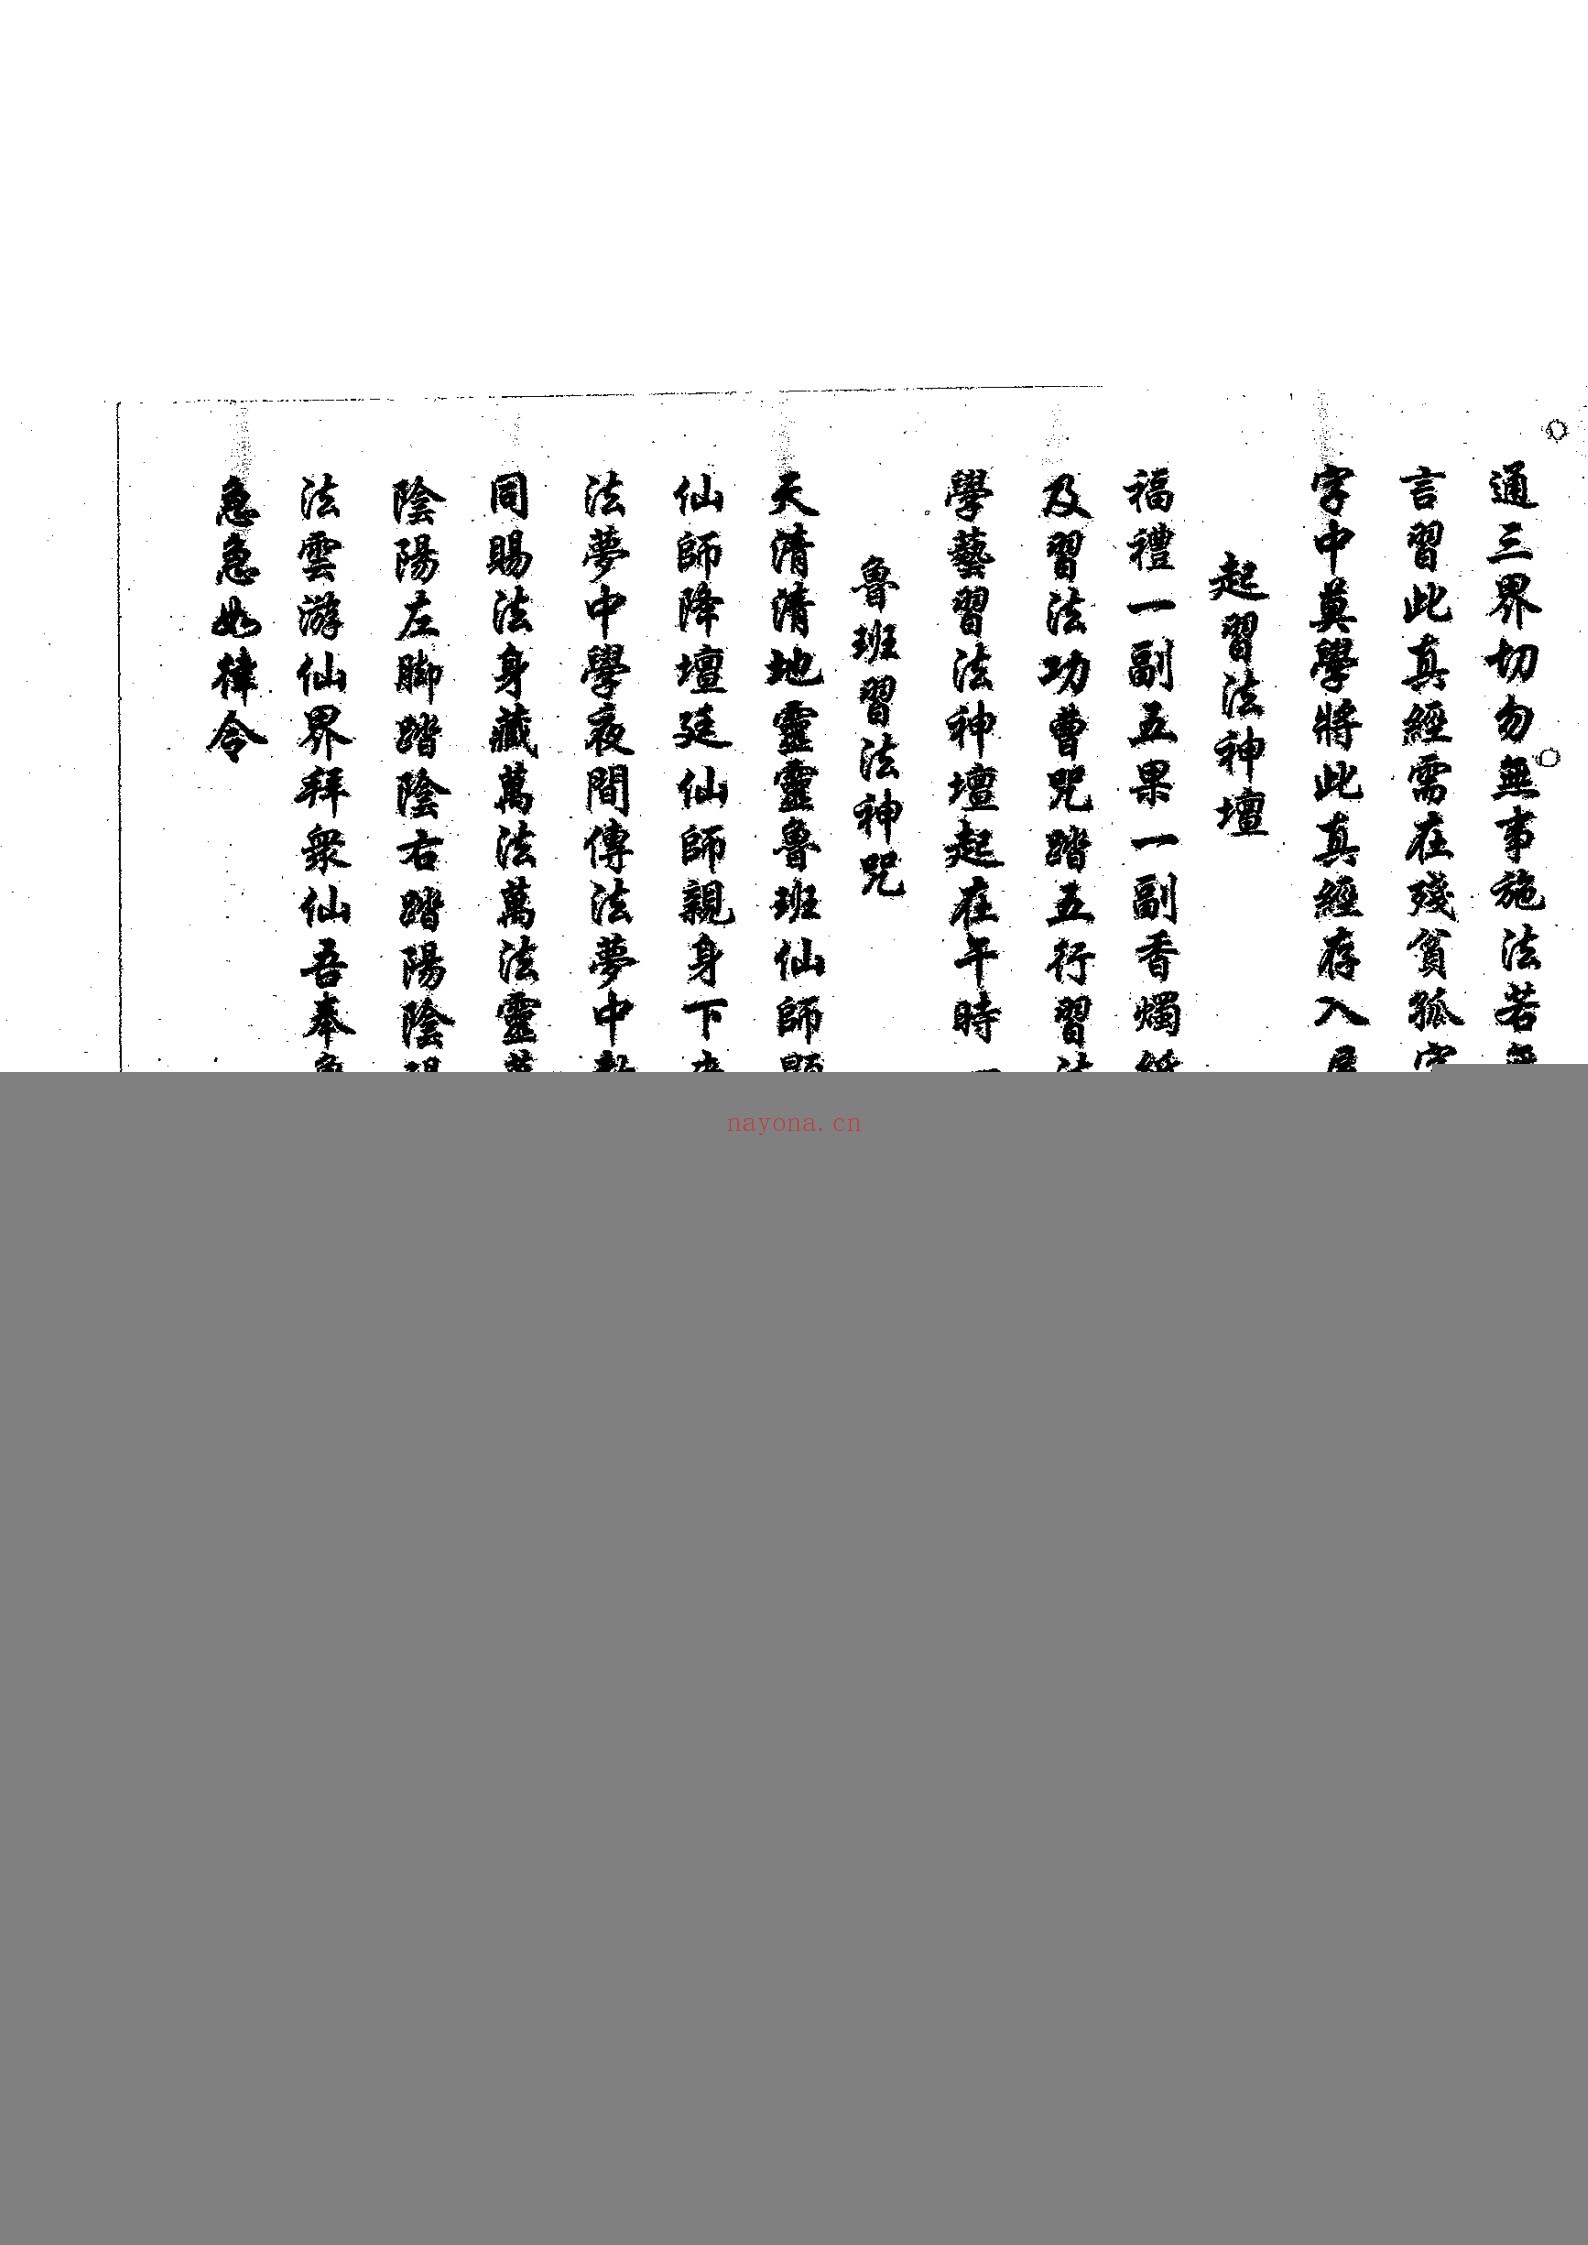 通三界切勿無事施法若無
言習此真經需在殘貧孤字
字中莫學將此真經存入
起習法神壇
福禮一副五果一副香燭紙
及習法功曹咒踏五行習法
學藝習法神壇起在午時
魯班習法神咒
天清清地靈靈魯班仙師顯
仙師降壇廷仙師親身下來
法夢中學夜間傳法夢中教
同賜法身藏萬法萬法靈萬
陰陽左脚踏陰右踏陽陰陽
法雲游仙界拜衆仙吾奉急
急急如律令
nayona.cn